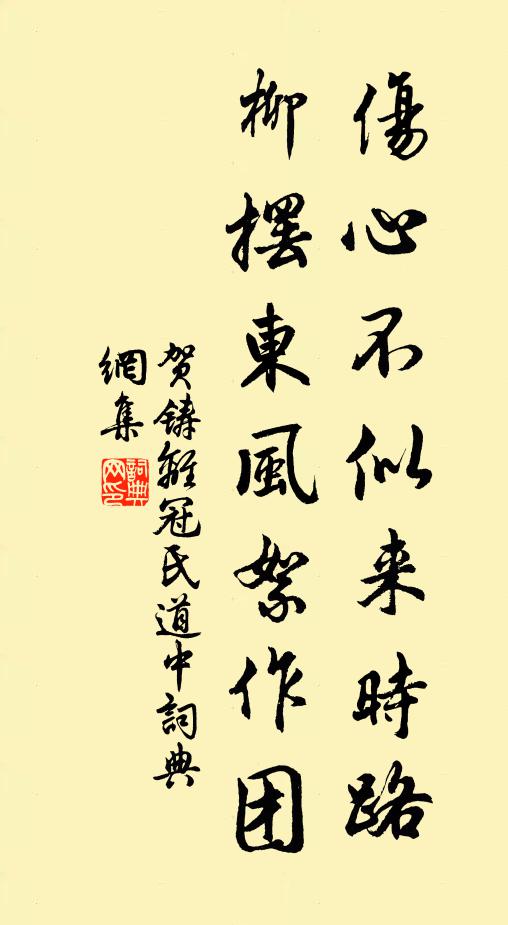 傷心不似来時路
柳擺東風絮作团
贺鋳離冠氏道中詞典
網集
詞典
网印